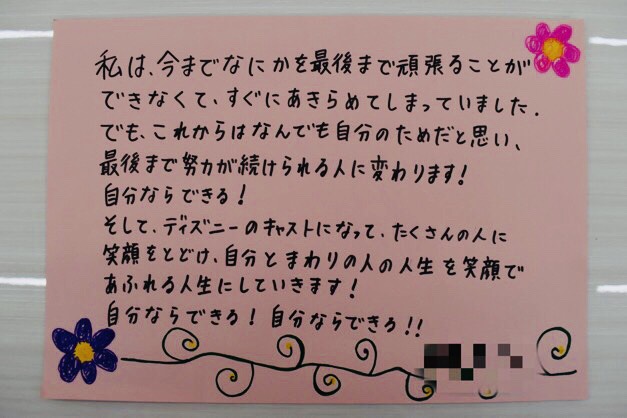 私は、今までなにかを最後まで頑張ることが
できなくて、すぐにあきらめてしまっていました.
でも、これからはなんでも自分のためだと思い、
最後まで努力が続けられる人に変わります!
自分ならできる!
そして、ディズニーのキャストになって、たくさんの人に
笑顔をとどけ、自分とまわりの人の人生を笑顔で
あふれる人生にしていきます!
自分ならできる! 自分ならできる!!